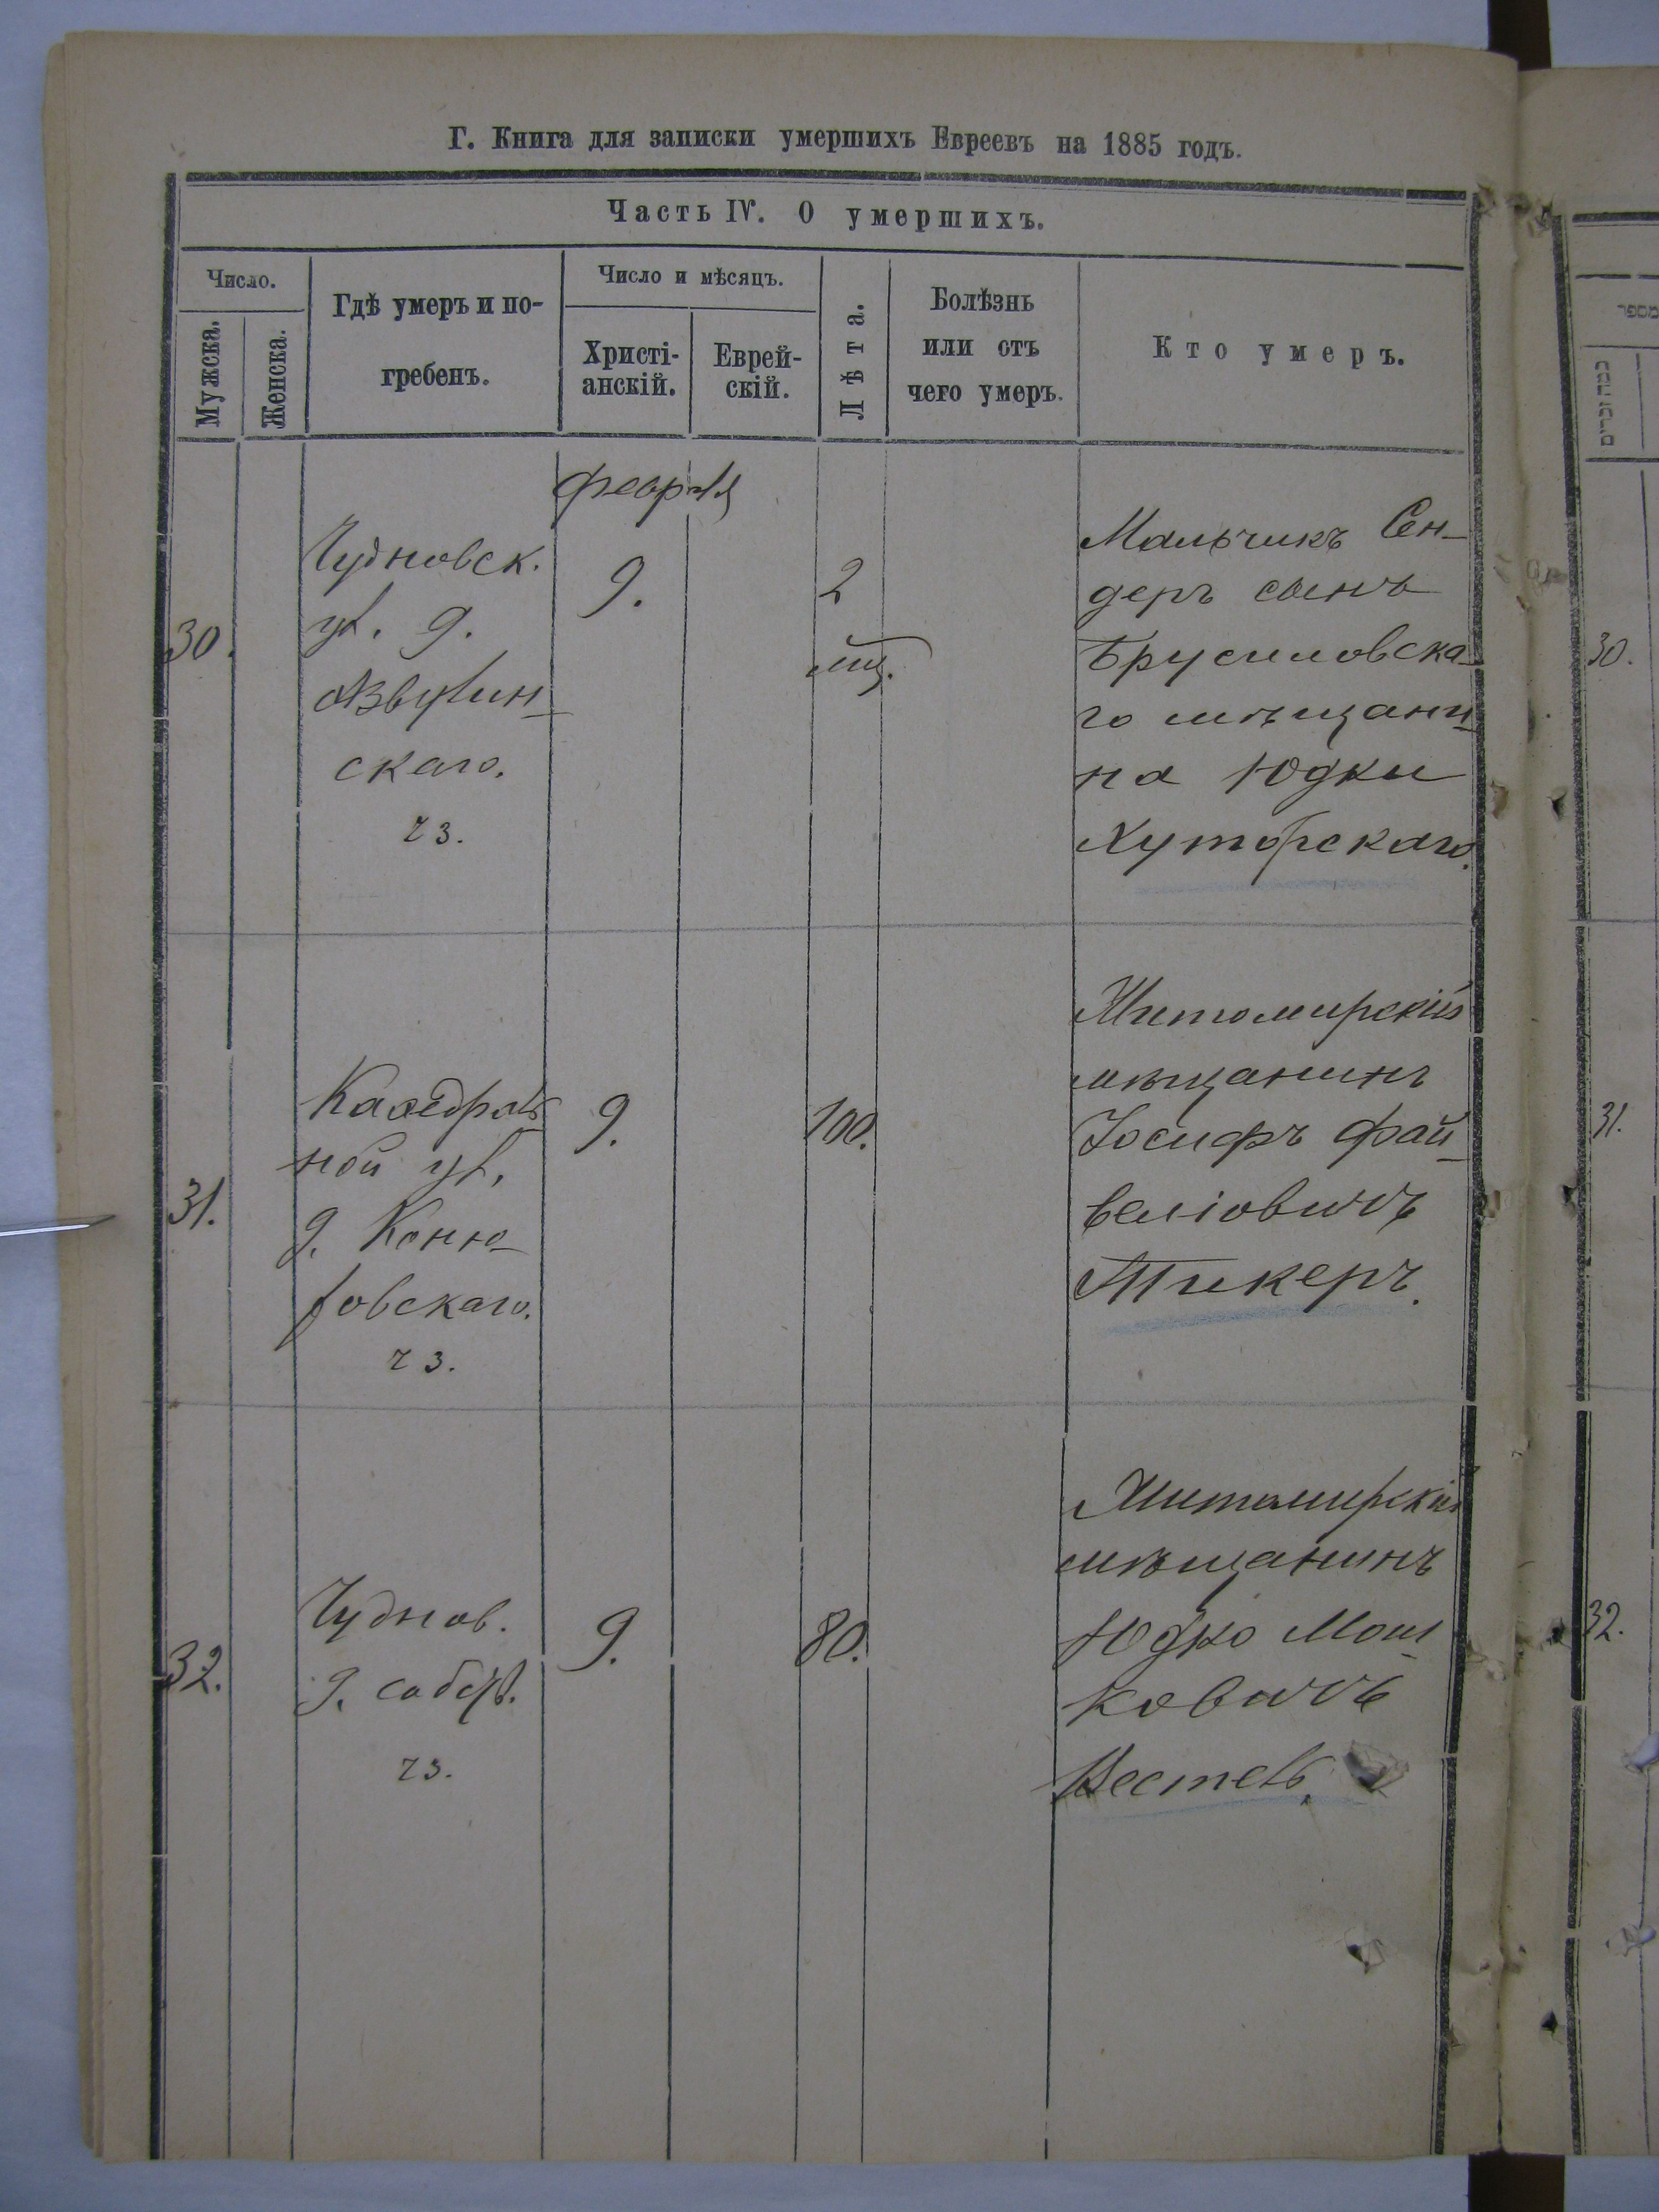 Г. Книга для записки умершихъ Евреевъ на 1885 годъ.
Часть IV. О умершихъ.
Число.
Мужска.
Женска.
Гдѣ умеръ и по-
гребенъ.
Число и мѣсяцъ.
Христі-
анскій.
Еврей-
скій.
Лѣта.
Болѣзнь
или отъ
чего умеръ.
Кто умеръ.
февраля
30.
Чудновск.
ул. д.
скаго.
9.
2
мц.
Мальчикъ Сен-
деръ сынъ
Брусиловска-
го мѣщани-
на Юдки
Хуторскаго.
30.
31.
Каѳедраль
ной ул.
д. Коню-
ховскаго.
9.
100.
Житомирскій
мѣщанинъ
Іосифъ Фай-
веліовичъ
Пикеръ.
31.
32.
Чуднов.
д. собств.
9.
80.
Житомирскій
мѣщанинъ
Юдко Мош-
ковичъ
Кестель.
32.